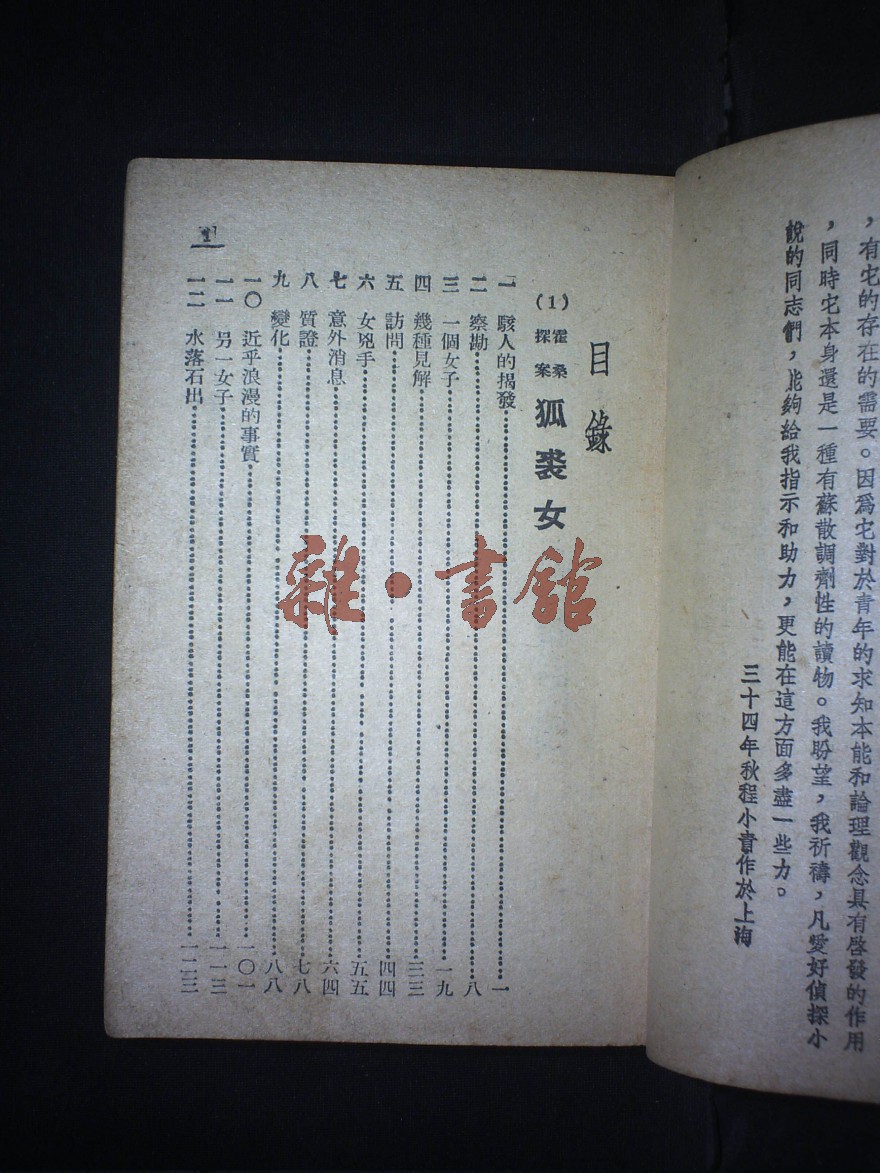 ，有它的存在的需要。因爲它對於青年的求知本能和論理觀念具有啓發的作用
，同時它本身還是一種有蘇散調劑性的讀物。我盼望，我祈禱，凡愛好偵探小
說的同志們，能夠給我指示和助力，更能在這方面多盡一些力。
三十四年秋程小青作於上海
目錄
(1) 霍桑探案 狐裘女
一 駭人的揭發 一
二 察勘 八
三 一個女子 一九
四 幾種見解 三三
五 訪問 四四
六 女兇手 五五
七 意外消息 六四
八 質證 七八
九 變化 八八
一〇 近乎浪漫的事實 一〇一
一一 另一女子 一一三
一二 水落石出 一二三
1
雜·書館